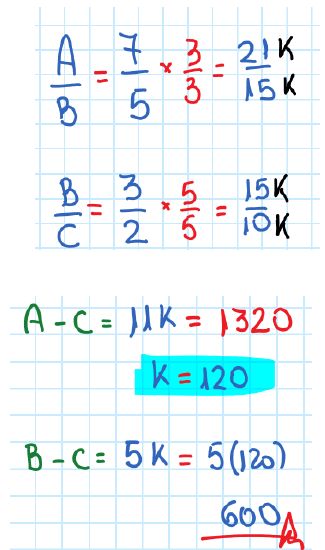 A/B = 7/5 × 3/3 = 21K/15K
B/C = 3/2 × 5/5 = 15K/10K
A - C = 11K = 1320
K = 120
B - C = 5K = 5(120)
600